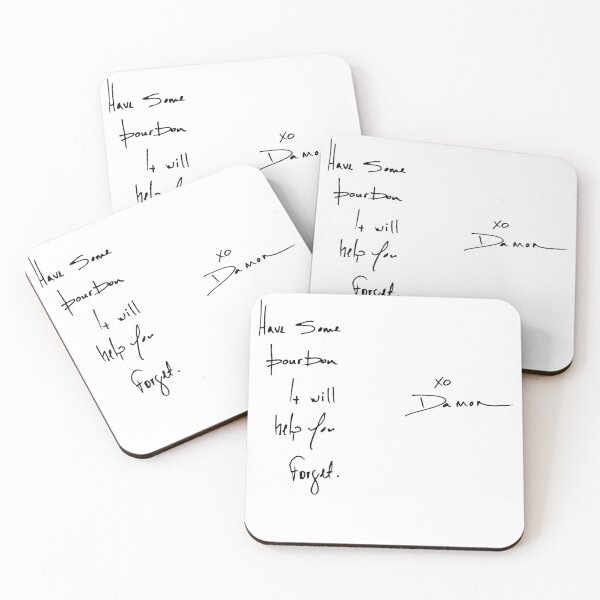 Have Some
bourbon
It will
help You
xo
Damon
Have Some
bourbon
It will
help You
Forget.
xo
Damon
Have Some
bourbon
It will
help You
Forget.
xo
Damon
Have Some
bourbon
It will
help You
Forget.
xo
Damon